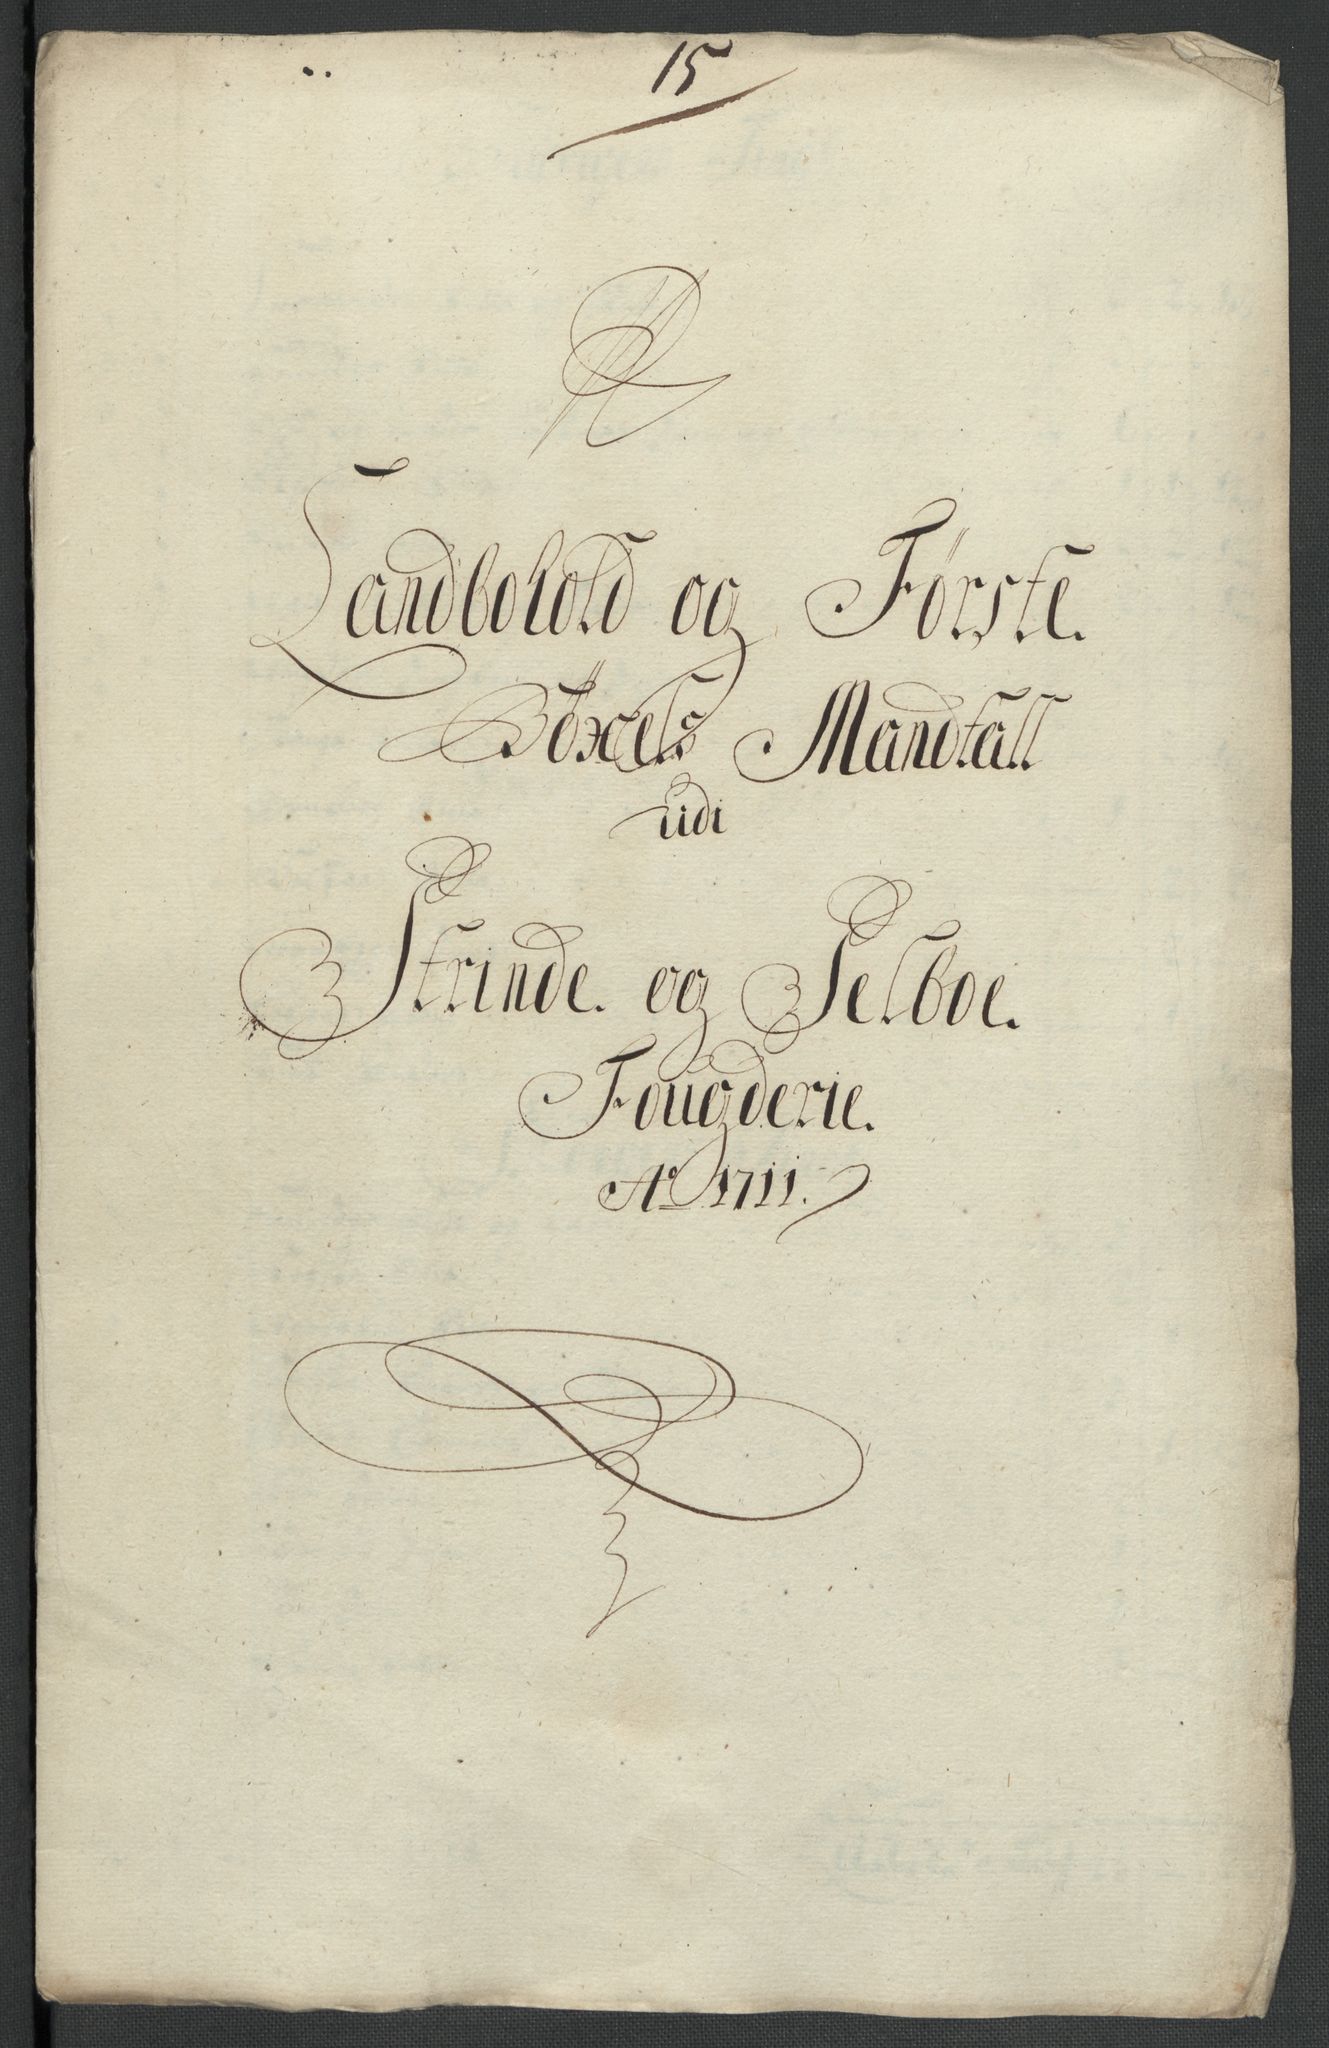 15
Landbohold og Første
Böxels Mandtall
udi
Strinde og Selboe
Fougderie.
Ao 1711.